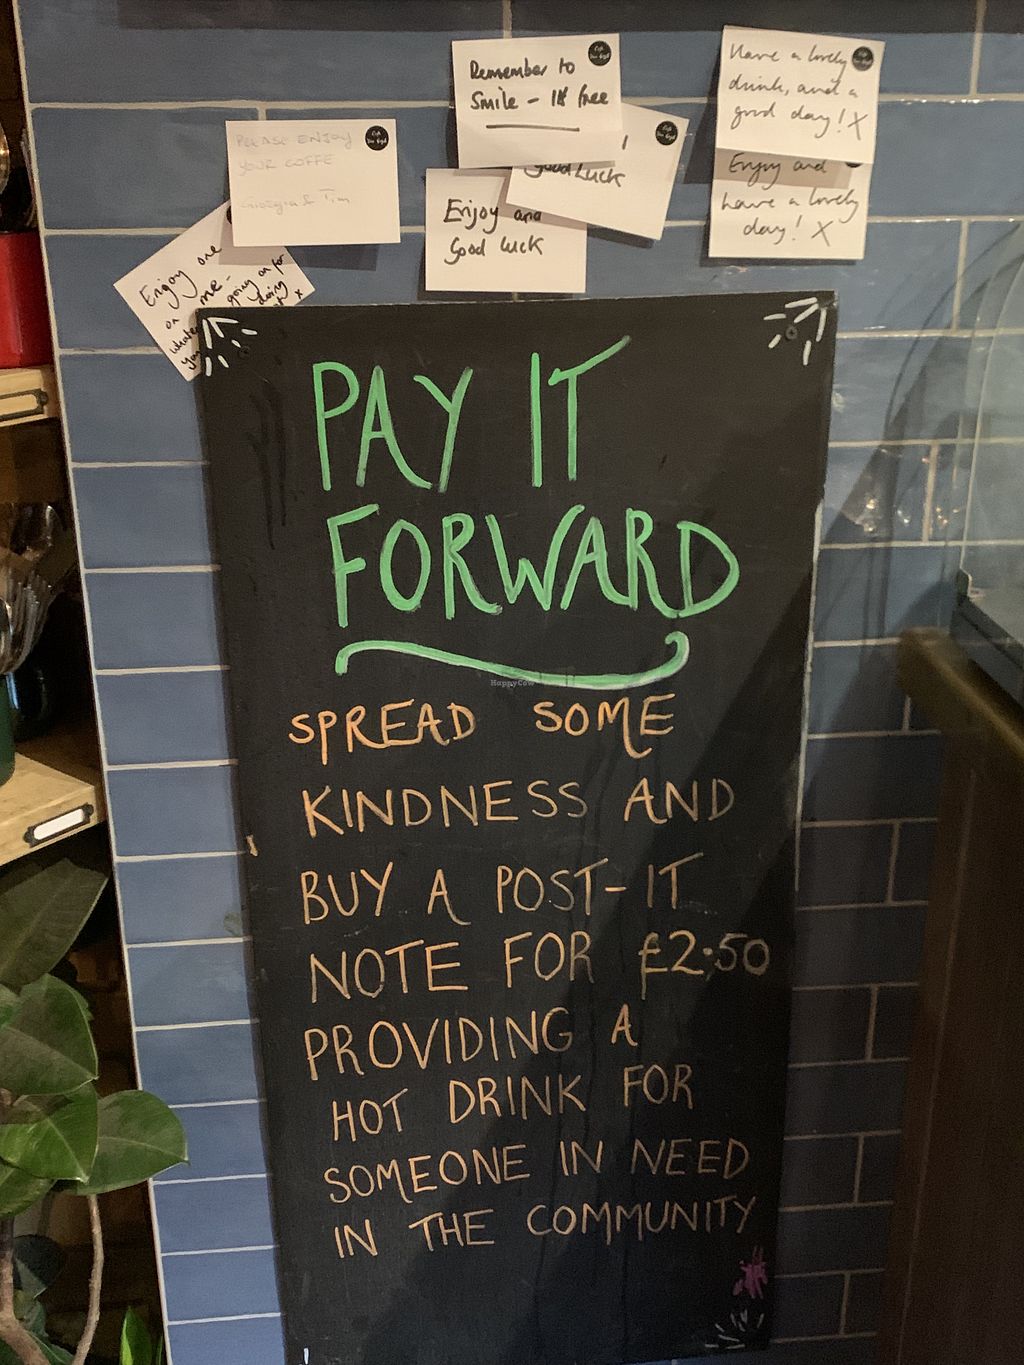 Remember to
Smile - It's free
Have a lovely
drink, and a
good day! X
PLEASE ENJOY
YOUR COFFE
Georgia & Tim
Good Luck
Enjoy and
Good luck
Enjoy and
have a lovely
day! X
Enjoy one
on me -
going on for
PAY IT
FORWARD
HappyCow
SPREAD SOME
KINDNESS AND
BUY A POST-IT
NOTE FOR £2.50
PROVIDING A
HOT DRINK FOR
SOMEONE IN NEED
IN THE COMMUNITY